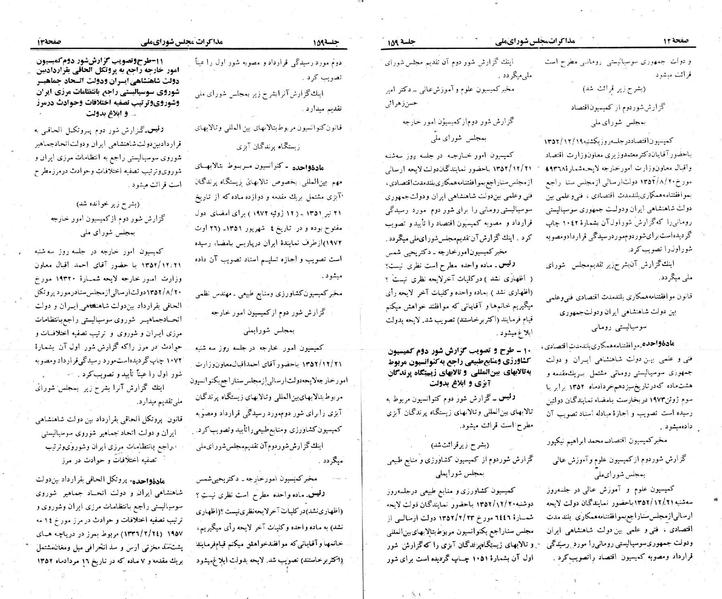 صفحهٔ ۱۲ مذاکرات مجلس شورای ملی جلسهٔ ۱۵۹
و دولت جمهوری سوسیالیستی رومانی مطرح است
قرائت میشود.
(بشرح زیر قرائت شد)
گزارش شور دوم از کمیسیون اقتصاد
بمجلس شورای ملی
کمیسیون اقتصاد در جلسه روز یکشنبه ۱۳۵۲/۱۲/۱۹
باحضور آقایان دکتر معتمدوزیری معاون وزارت اقتصاد
و اقبال معاون وزارت امور خارجه لایحه شمارهٔ ۴۹۳۶۸
مورخ ۱۳۵۲/۸/۲۰ دولت ارسالی از مجلس سنا راجع
بموافقتنامه همکاری بلندمدت اقتصادی، فنی و علمی بین
دولت شاهنشاهی ایران و دولت جمهوری سوسیالیستی
رومانی را که گزارش شور اول آن بشمارهٔ ۱۰۴۲ چاپ
گردیده است برای شور دوم مورد رسیدگی قرار داد و مصوبه
شور اول را تصویب کرد.
اینک گزارش آن بشرح زیر تقدیم مجلس شورای
ملی میگردد.
قانون موافقتنامه همکاری بلندمدت اقتصادی، فنی و علمی
بین دولت شاهنشاهی ایران و دولت جمهوری
سوسیالیستی رومانی
ماده واحده ـ موافقتنامه همکاری بلندمدت اقتصادی،
فنی و علمی بین دولت شاهنشاهی ایران و دولت
جمهوری سوسیالیستی رومانی مشتمل بر یک مقدمه و
هشت ماده که در تاریخ سیزدهم خرداد ماه ۱۳۵۲ برابر با
سوم ژوئن ۱۹۷۳ در بخارست بامضاء نمایندگان دولتین
رسیده است تصویب و اجازهٔ مبادله اسناد تصویب آن
داده میشود.
مخبر کمیسیون اقتصاد ـ محمد ابراهیم نیکپور
گزارش شور دوم از کمیسیون علوم و آموزش عالی
بمجلس شورای ملی
کمیسیون علوم و آموزش عالی در جلسه روز
سه شنبه ۱۳۵۲/۱۲/۲۱ باحضور نمایندگان دولت لایحه
راجع بموافقتنامه همکاری بلندمدت
اقتصادی، فنی و علمی بین دولت شاهنشاهی ایران و
دولت جمهوری سوسیالیستی رومانی را مورد رسیدگی
قرارداد و مصوبه کمیسیون اقتصاد را تصویب کرد.
اینک گزارش شور دوم آن تقدیم مجلس شورای
ملی میگردد.
مخبر کمیسیون علوم و آموزش عالی ـ دکتر امیر
حسن زهرائی
گزارش شور دوم از کمیسیون امور خارجه
بمجلس شورای ملی
کمیسیون امور خارجه در جلسه روز سه شنبه
۱۳۵۲/۱۲/۲۱ باحضور نمایندگان دولت لایحه ارسالی
از مجلس سنا راجع بموافقتنامه همکاری بلندمدت اقتصادی،
فنی و علمی بین دولت شاهنشاهی ایران و دولت جمهوری
سوسیالیستی رومانی را برای شور دوم مورد رسیدگی
قرارداد و مصوبه کمیسیون اقتصاد را تأیید و تصویب
کرد. اینک گزارش آن تقدیم مجلس شورای ملی میگردد.
مخبر کمیسیون امور خارجه ـ دکتر یحیی شمس
رئیس ـ ماده واحده مطرح است نظری نیست؟
(اظهاری نشد) در کلیات آخر لایحه نظری نیست؟
(اظهاری نشد) به ماده واحده و کلیات آخر لایحه رأی
میگیریم خانمها و آقایانی که موافقند خواهش میکنم
قیام فرمایند (اکثر برخاستند) تصویب شد. لایحه بدولت
ابلاغ میشود.
۱۰ ـ طرح و تصویب گزارش شور دوم کمیسیون
کشاورزی و منابع طبیعی راجع به کنوانسیون مربوط
به تالابهای بین المللی و تالابهای زیستگاه پرندگان
آبزی و ابلاغ بدولت
رئیس ـ گزارش شور دوم کنوانسیون مربوط به
تالابهای بین المللی و تالابهای زیستگاه پرندگان آبزی
مطرح است قرائت میشود.
(بشرح زیر قرائت شد)
گزارش شور دوم از کمیسیون کشاورزی و منابع طبیعی
بمجلس شورای ملی
کمیسیون کشاورزی و منابع طبیعی در جلسه روز
دوشنبه ۱۳۵۲/۱۲/۲۰ باحضور نمایندگان دولت لایحه
شمارهٔ ۲۶۴۹ مورخ ۱۳۵۲/۲/۲۳ دولت ارسالی از
مجلس سنا راجع بکنوانسیون مربوط بتالابهای بین المللی
و تالابهای زیستگاه پرندگان آبزی را که گزارش شور
اول آن بشمارهٔ ۱۰۵۱ چاپ گردیده است برای شور
جلسهٔ ۱۵۹ مذاکرات مجلس شورای ملی صفحهٔ ۱۳
دوم مورد رسیدگی قرارداد و مصوبه شور اول را عیناً
تصویب کرد.
اینک گزارش آنرا بشرح زیر بمجلس شورای ملی
تقدیم میدارد.
قانون کنوانسیون مربوط بتالابهای بین المللی و تالابهای
زیستگاه پرندگان آبزی
ماده واحده ـ کنوانسیون مربوط بتالابهای
مهم بین المللی بخصوص تالابهای زیستگاه پرندگان
آبزی مشتمل بر یک مقدمه و دوازده ماده که از تاریخ
۲۱ تیر ۱۳۵۱ (۱۲ ژوئیه ۱۹۷۲) برای امضای دول
مفتوح بوده و در تاریخ ۴ شهریور ۱۳۵۱ (۲۶ اوت
۱۹۷۲) از طرف نمایندهٔ ایران در پاریس بامضاء رسیده
است تصویب و اجازه تسلیم اسناد تصویب آن داده
میشود.
مخبر کمیسیون کشاورزی و منابع طبیعی ـ مهندس نظمی
گزارش شور دوم از کمیسیون امور خارجه
بمجلس شورایملی
کمیسیون امور خارجه در جلسه روز سه شنبه
۱۳۵۲/۱۲/۲۱ باحضور آقای احمد اقبال معاون وزارت
امور خارجه لایحه دولت ارسالی از مجلس سنا راجع بکنوانسیون
مربوط بتالابهای بین المللی و تالابهای زیستگاه پرندگان
آبزی را برای شور دوم مورد رسیدگی قرارداد و مصوبه
کمیسیون کشاورزی و منابع طبیعی را تأیید و تصویب کرد.
اینک گزارش شور دوم آن تقدیم مجلس شورای ملی
میگردد.
مخبر کمیسیون امور خارجه ـ دکتر یحیی شمس
رئیس ـ ماده واحده مطرح است نظری نیست؟
(اظهاری نشد) در کلیات آخر لایحه نظری نیست؟ (اظهاری
نشد) به ماده واحده و کلیات آخر لایحه رأی میگیریم
خانمها و آقایانی که موافقند خواهش میکنم قیام فرمایند
(اکثر برخاستند). تصویب شد. لایحه بدولت ابلاغ میشود
۱۱ ـ طرح و تصویب گزارش شور دوم کمیسیون
امور خارجه راجع به پروتکل الحاقی بقرارداد بین
دولت شاهنشاهی ایران و دولت اتحاد جماهیر
شوروی سوسیالیستی راجع بانتظامات مرزی ایران
و شوروی و ترتیب تصفیه اختلافات و حوادث در مرز
و ابلاغ بدولت
رئیس ـ گزارش شور دوم پروتکل الحاقی به
قرارداد بین دولت شاهنشاهی ایران و دولت اتحاد جماهیر
شوروی راجع به انتظامات مرزی ایران و شوروی و
ترتیب تصفیه اختلافات و حوادث در مرز مطرح
است قرائت میشود.
(بشرح زیر خوانده شد)
گزارش شور دوم از کمیسیون امور خارجه
بمجلس شورای ملی
کمیسیون امور خارجه در جلسه روز سه شنبه
۱۳۵۲/۱۲/۲۱ با حضور آقای احمد اقبال معاون
وزارت امور خارجه لایحه شمارهٔ ۱۹۳۲۰ مورخ
۱۳۵۲/۸/۲۰ دولت ارسالی از مجلس سنا در مورد پروتکل
الحاقی بقرارداد بین دولت شاهنشاهی ایران و دولت
اتحاد جماهیر شوروی سوسیالیستی راجع بانتظامات
مرزی ایران و شوروی و ترتیب تصفیه اختلافات و
حوادث در مرز را که گزارش شور اول آن بشمارهٔ
۱۰۷۲ چاپ گردیده است مورد رسیدگی قرار داد و مصوبه
شور اول را عیناً تأیید و تصویب کرد.
اینک گزارش آنرا بشرح زیر بمجلس شورای
ملی تقدیم میدارد.
قانون پروتکل الحاقی بقرارداد بین دولت شاهنشاهی
ایران و دولت اتحاد جماهیر شوروی سوسیالیستی
راجع بانتظامات مرزی ایران و شوروی و ترتیب
تصفیه اختلافات و حوادث در مرز
ماده واحده ـ پروتکل الحاقی بقرارداد بین دولت
شاهنشاهی ایران و دولت اتحاد جماهیر شوروی
سوسیالیستی راجع بانتظامات مرزی ایران و شوروی و
ترتیب تصفیه اختلافات و حوادث در مرز مورخ ۱۴ مه
۱۹۵۷ (۱۳۳۶/۲/۲۴) مربوط بمرز در دریاچه های
پشت سد مخزنی ارس و سد انحرافی میل و مغان مشتمل
بر یک مقدمه و ۷ ماده که در تاریخ ۱۶ مرداد ماه ۱۳۵۲